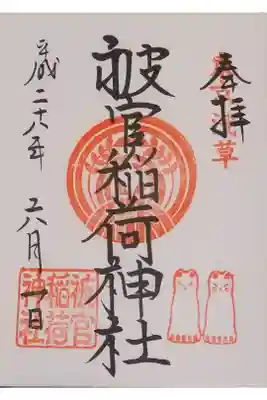 奉拝
浅草
被官稲荷神社
被官
稲荷
神社
平成二十八年
六月 日